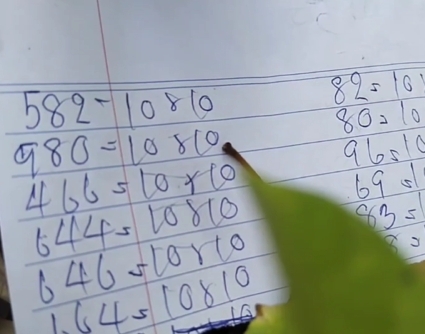 582=10x10
980=10x10
466=10x10
644=10x10
646=10x10
664=10x10
82=10
80=10
96=10
69=1
83=1